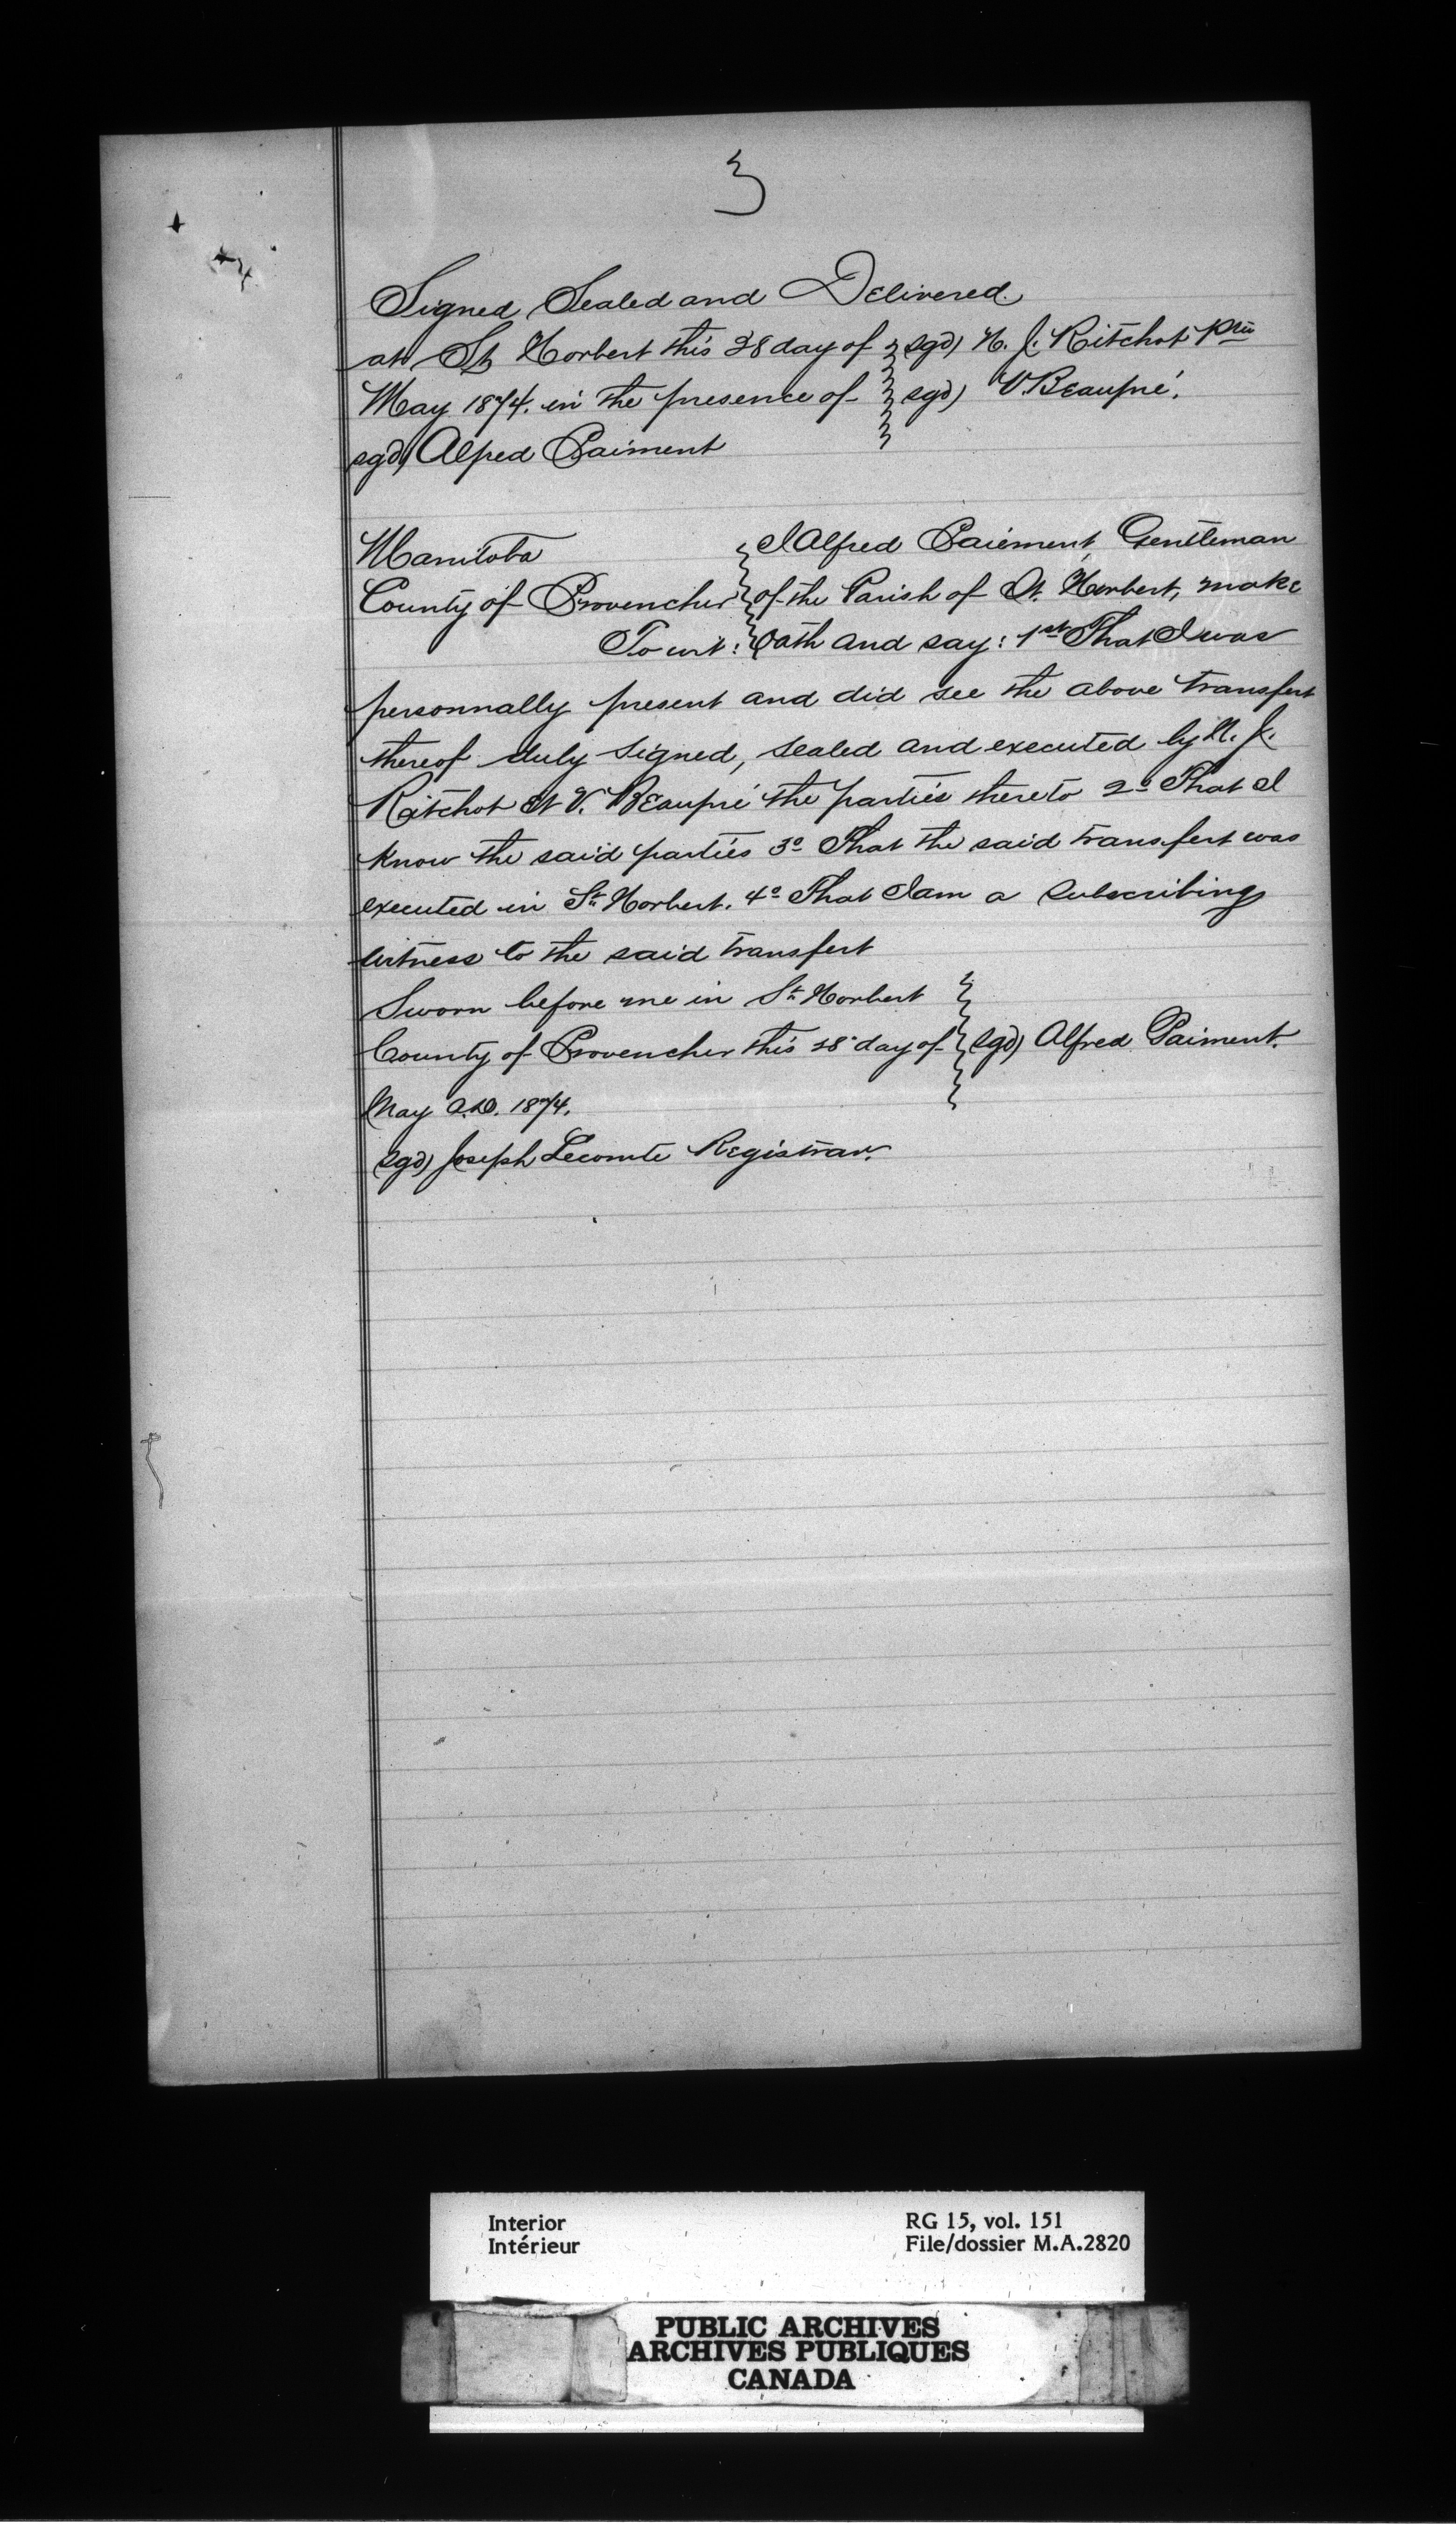 3
Signed, Sealed and Delivered.
at St Norbert this 28 day of } sgd) N. J. Ritchot Ptre
May 1874. in the presence of } sgd) V. Beaupré.
sgd) Alfred Paiment
Manitoba } I Alfred Paiement, Gentleman
County of Provencher } of the Parish of St. Norbert, make
To wit: } Oath and say: 1st That I was
personnally present and did see the above transfert
thereof duly signed, sealed and executed by N. J.
Ritchot et V. Beaupré the parties thereto 2º That I
know the said parties 3º That the said transfert was
executed in St. Norbert. 4º That I am a subscribing
witness to the said transfert
Sworn before me in St. Norbert }
County of Provencher this 28 day of } sgd) Alfred Paiment.
May A.D. 1874. }
sgd) Joseph Lecomte Registrar.
Interior RG 15, vol. 151
Intérieur File/dossier M.A.2820
PUBLIC ARCHIVES
ARCHIVES PUBLIQUES
CANADA